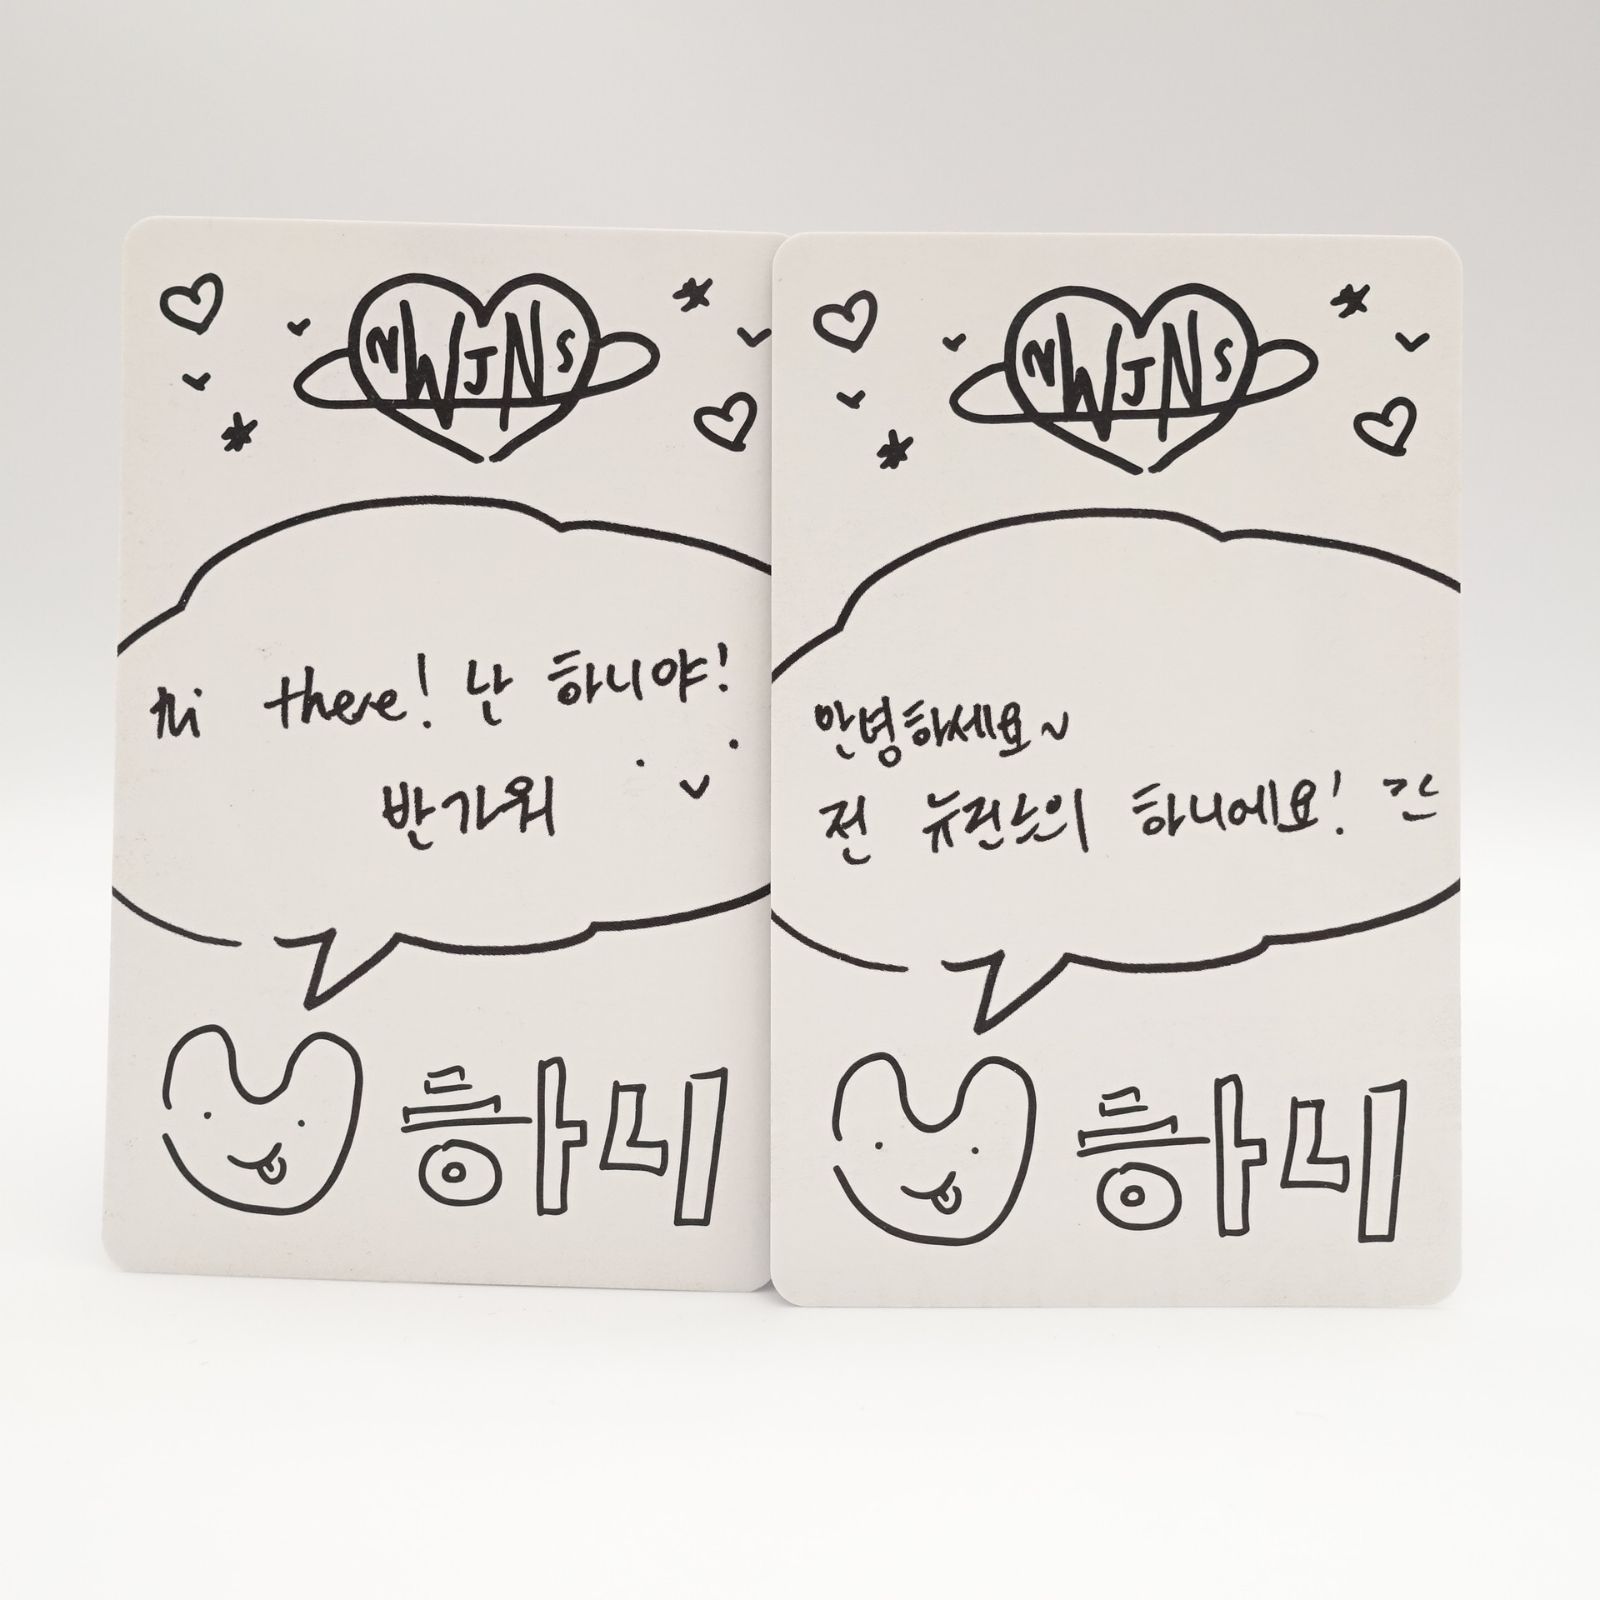 NWJNS
hi there! 난 하니야!
반가워
하니
NWJNS
안녕하세요~
전 뉴진스의 하니에요!
하니